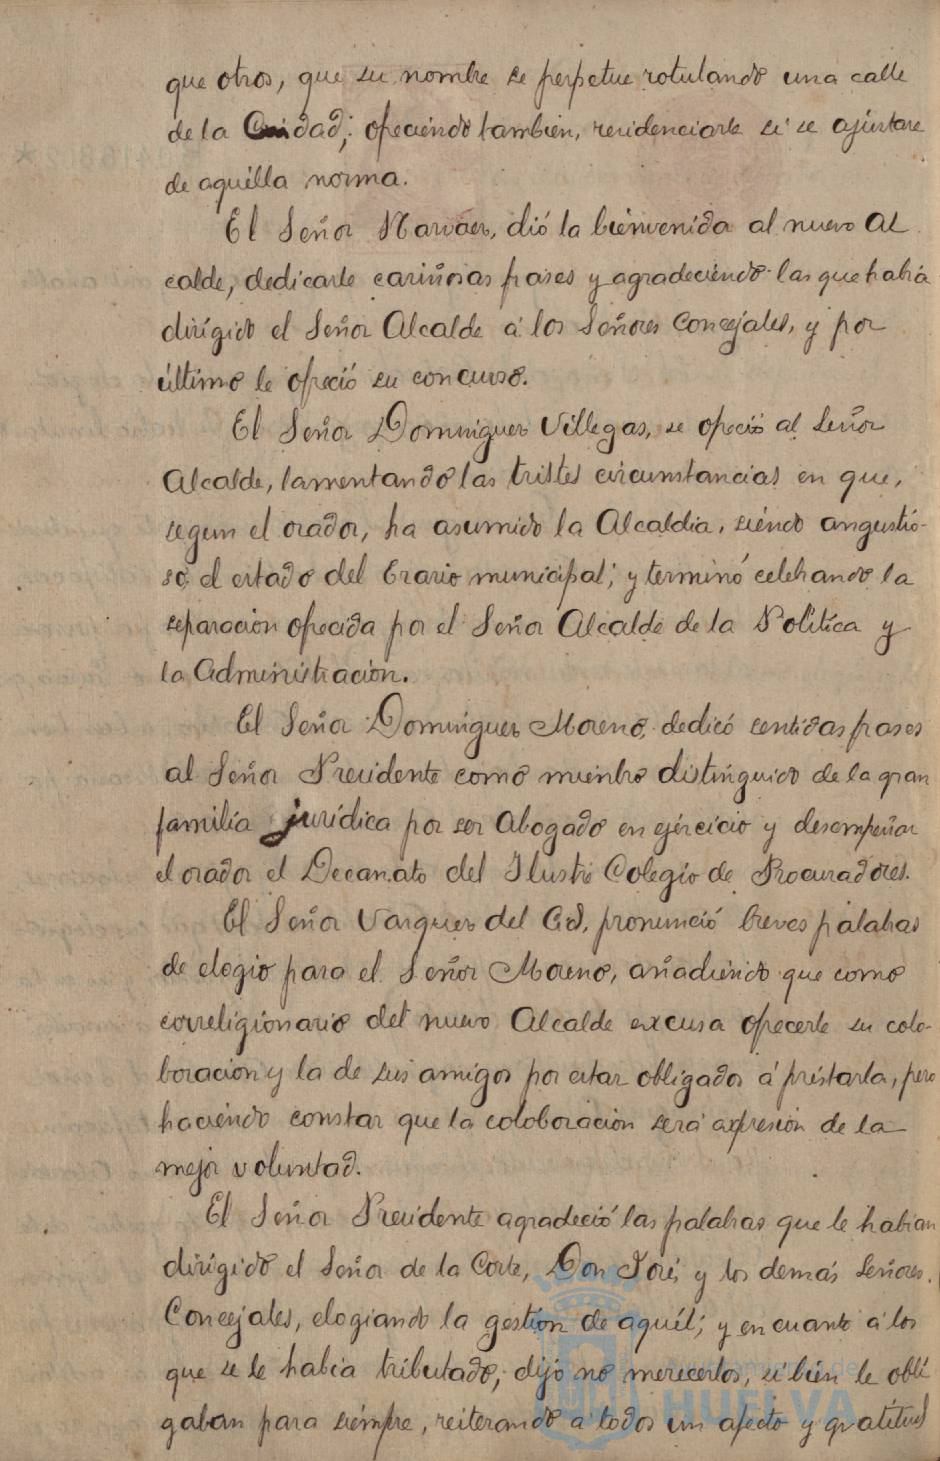 que otros, que su nombre se perpetue rotulando una calle
de la Ciudad; ofreciendo tambien, residenciarle si se ajustare
de aquélla norma.
El Señor Narváez, dió la bienvenida al nuevo Al
calde, dedicarle cariñosas frases y agradeciendo las que había
dirigido el Señor Alcalde á los Señores Concejales, y por
último le ofreció su concurso.
El Señor Dominguez Villegas, se ofreció al Señor
Alcalde, lamentando las tristes circunstancias en que,
segun el orador, ha asumido la Alcaldia, siendo angustio-
so el estado del Erario municipal; y terminó celebrando la
separacion ofrecida por el Señor Alcalde de la Política y
la Administracion.
El Señor Dominguez Moreno, dedicó sentidas frases
al Señor Presidente como miembro distinguido de la gran
familia jurídica por ser Abogado en ejercicio y desempeñar
el orador el Decanato del Ilustre Colegio de Procuradores.
El Señor Vazquez del Cid, pronunció breves palabras
de elogio para el Señor Moreno, añadiendo que como
correligionario del nuevo Alcalde excusa ofrecerle su cola-
boracion y la de sus amigos por estar obligados á prestarla, pero
haciendo constar que la coloboracion será expresión de la
mejor voluntad.
El Señor Presidente agradeció las palabras que le habian
dirigido el Señor de la Corte, Don José, y los demás Señores
Concejales, elogiando la gestión de aquél; y en cuanto á los
que se le habia tributado, dijo no merecerlos, si bien le obli
gaban para siempre, reiterando a todos un afecto y gratitud
Ayuntamiento de
HUELVA